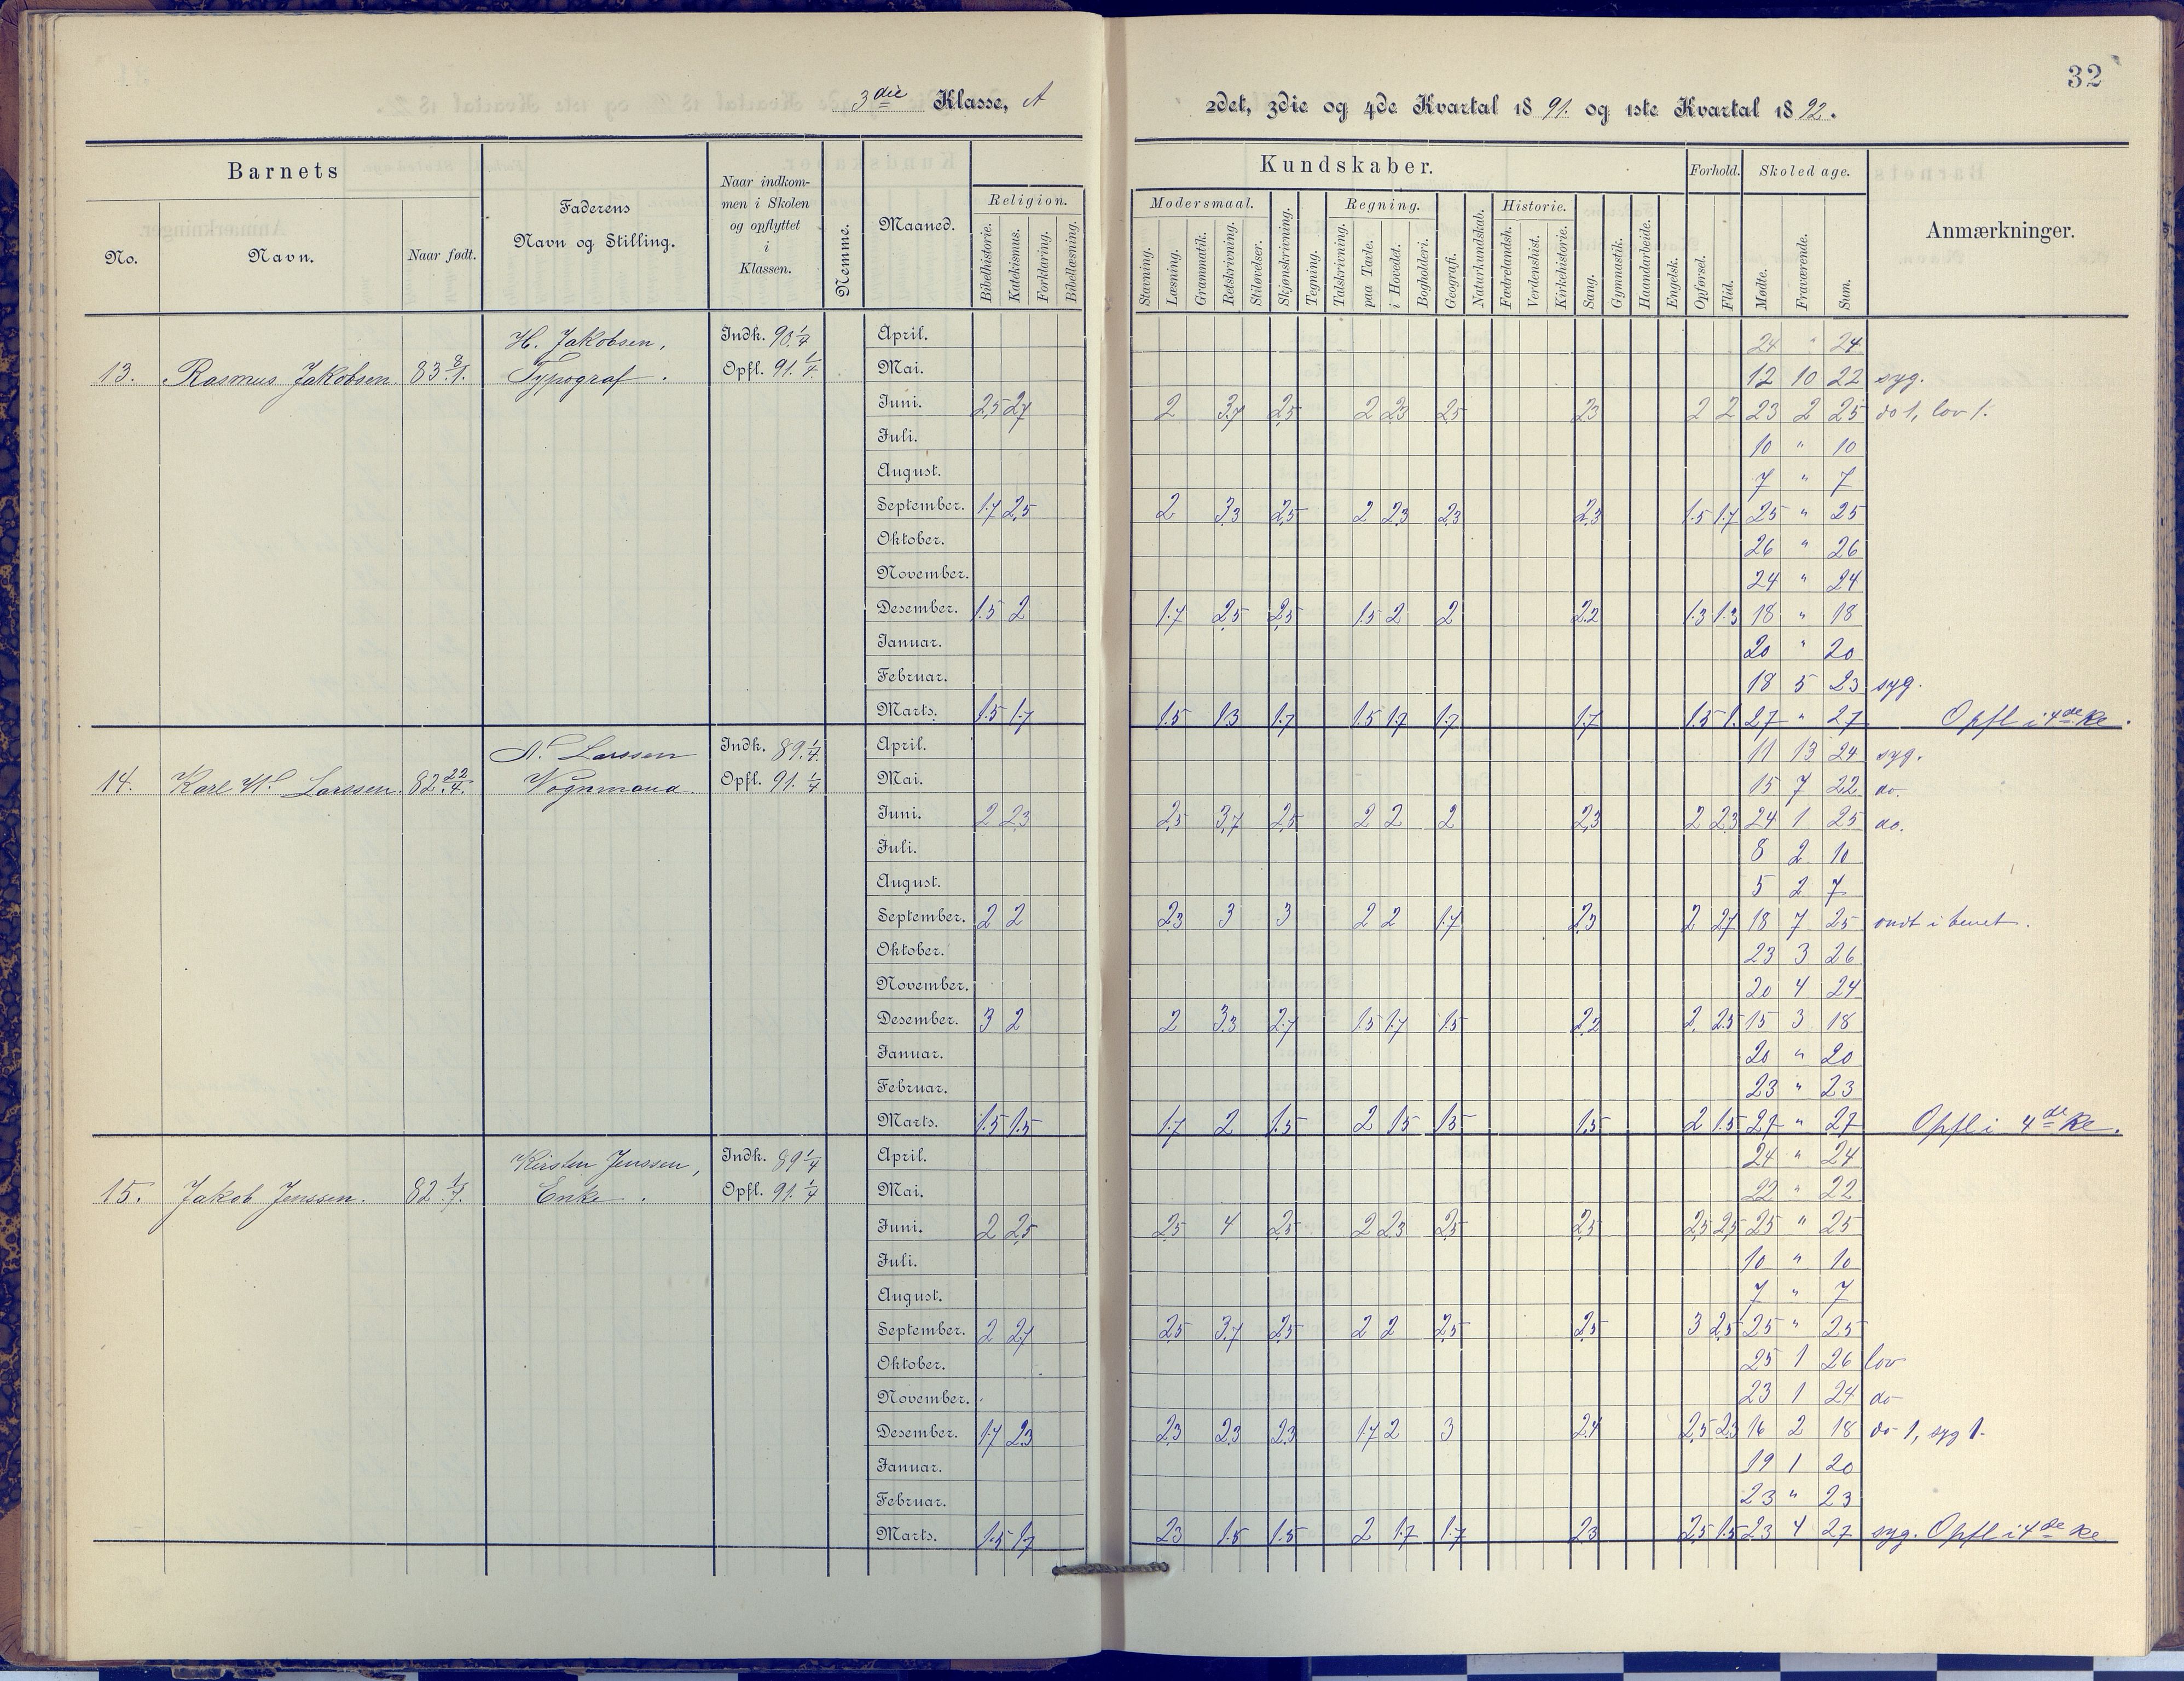 32
3die Klasse, A
2det, 3die og 4de Kvartal 1891. og 1ste Kvartal 1892.
Barnets
No.
Navn.
Naar født.
Faderens
Navn og Stilling.
Naar indkom-
men i Skolen
og opflyttet
i
Klassen.
Nemme.
Maaned.
Religion.
Bibelhistorie.
Katekismus.
Forklaring.
Bibellæsning.
Kundskaber.
Modersmaal.
Stavning.
Læsning.
Grammatik.
Retskrivning.
Stiløvelser.
Skjønskrivning.
Tegning.
Regning.
Talskrivning.
paa Tavle.
i Hovedet.
Bogholderi.
Geografi.
Naturkundskab.
Historie.
Fædrelandsh.
Verdenshist.
Kirkehistorie.
Sang.
Gymnastik.
Haandarbeide.
Engelsk.
Forhold.
Opførsel.
Flid.
Skoledage.
Mødte.
Fraværende.
Sum.
Anmærkninger.
13. Rasmus Jakobsen. 83 8/1.
H. Jakobsen,
Typograf.
Indk. 90. 1/4
Opfl. 91. 1/4.
April. 24 " 24
Mai. 12 10 22 syg.
Juni. 2,5 2,7 2 3,7 2,5 2 2,3 2,5 2,3 2 2 23 2 25 do 1, lov 1.
Juli. 10 " 10
August. 7 " 7
September. 1.7 2,5 2 3,3 2,5 2 2,3 2,3 2,3 1.5 1.7 25 " 25
Oktober. 26 " 26
November. 24 " 24
Desember. 1.5 2 1.7 2,5 2,5 1.5 2 2 2.2 1.3 1.3 18 " 18
Januar. 20 " 20
Februar. 18 5 23 syg.
Marts. 1.5 1.7 1.5 1.3 1.7 1.5 1.7 1.7 1.7 1.5 1. 27 " 27 Opfl i 4de Kl.
14. Karl W. Larssen. 82 22/4.
N. Larssen
Vognmand.
Indk. 89. 1/4.
Opfl. 91. 1/4
April. 11 13 24 syg.
Mai. 15 7 22 do.
Juni. 2 2,3 2,5 3,7 2,5 2 2 2 2,3 2 2,3 24 1 25 do.
Juli. 8 2 10
August. 5 2 7
September. 2 2 2,3 3 3 2 2 1.7 2,3 2 2,7 18 7 25 ondt i benet.
Oktober. 23 3 26
November. 20 4 24
Desember. 3 2 2 3.3 2.7 1.5 1.7 1.5 2.2 2. 2.5 15 3 18
Januar. 20 " 20
Februar. 23 " 23
Marts. 1.5 1.5 1.7 2 1.5 2 1.5 1.5 1.5 2 1.5 27 " 27 Opfl i 4de Kl.
15. Jakob Jenssen. 82 1/7.
Kirsten Jenssen,
Enke.
Indk. 89 1/4
Opfl. 91. 1/4
April. 24 " 24
Mai. 22 " 22
Juni. 2 2,5 2,5 4 2,5 2 2,3 2,5 2,5 2,5 2,5 25 " 25
Juli. 10 " 10
August. 7 " 7
September. 2 2,7 2,5 3,7 2,5 2 2 2,5 2,5 3 2,5 25 " 25
Oktober. 25 1 26 lov
November. 23 1 24 do
Desember. 1.7 2.3 2,3 2,3 2,3 1.7 2 3 2.4 2,5 2,3 16 2 18 do 1, syg 1.
Januar. 19 1 20
Februar. 23 " 23
Marts. 1.5 1.7 2,3 1.5 1.5 2 1.7 1.7 2,3 2,5 1.5 23 4 27 syg. Opfl i 4de Kl